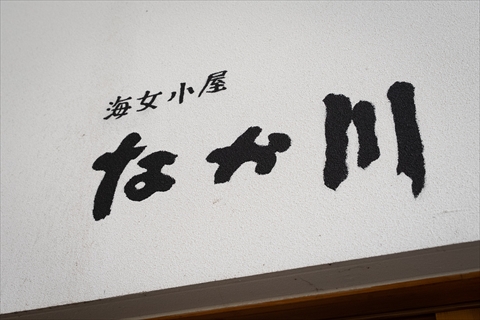 海女小屋
なか川